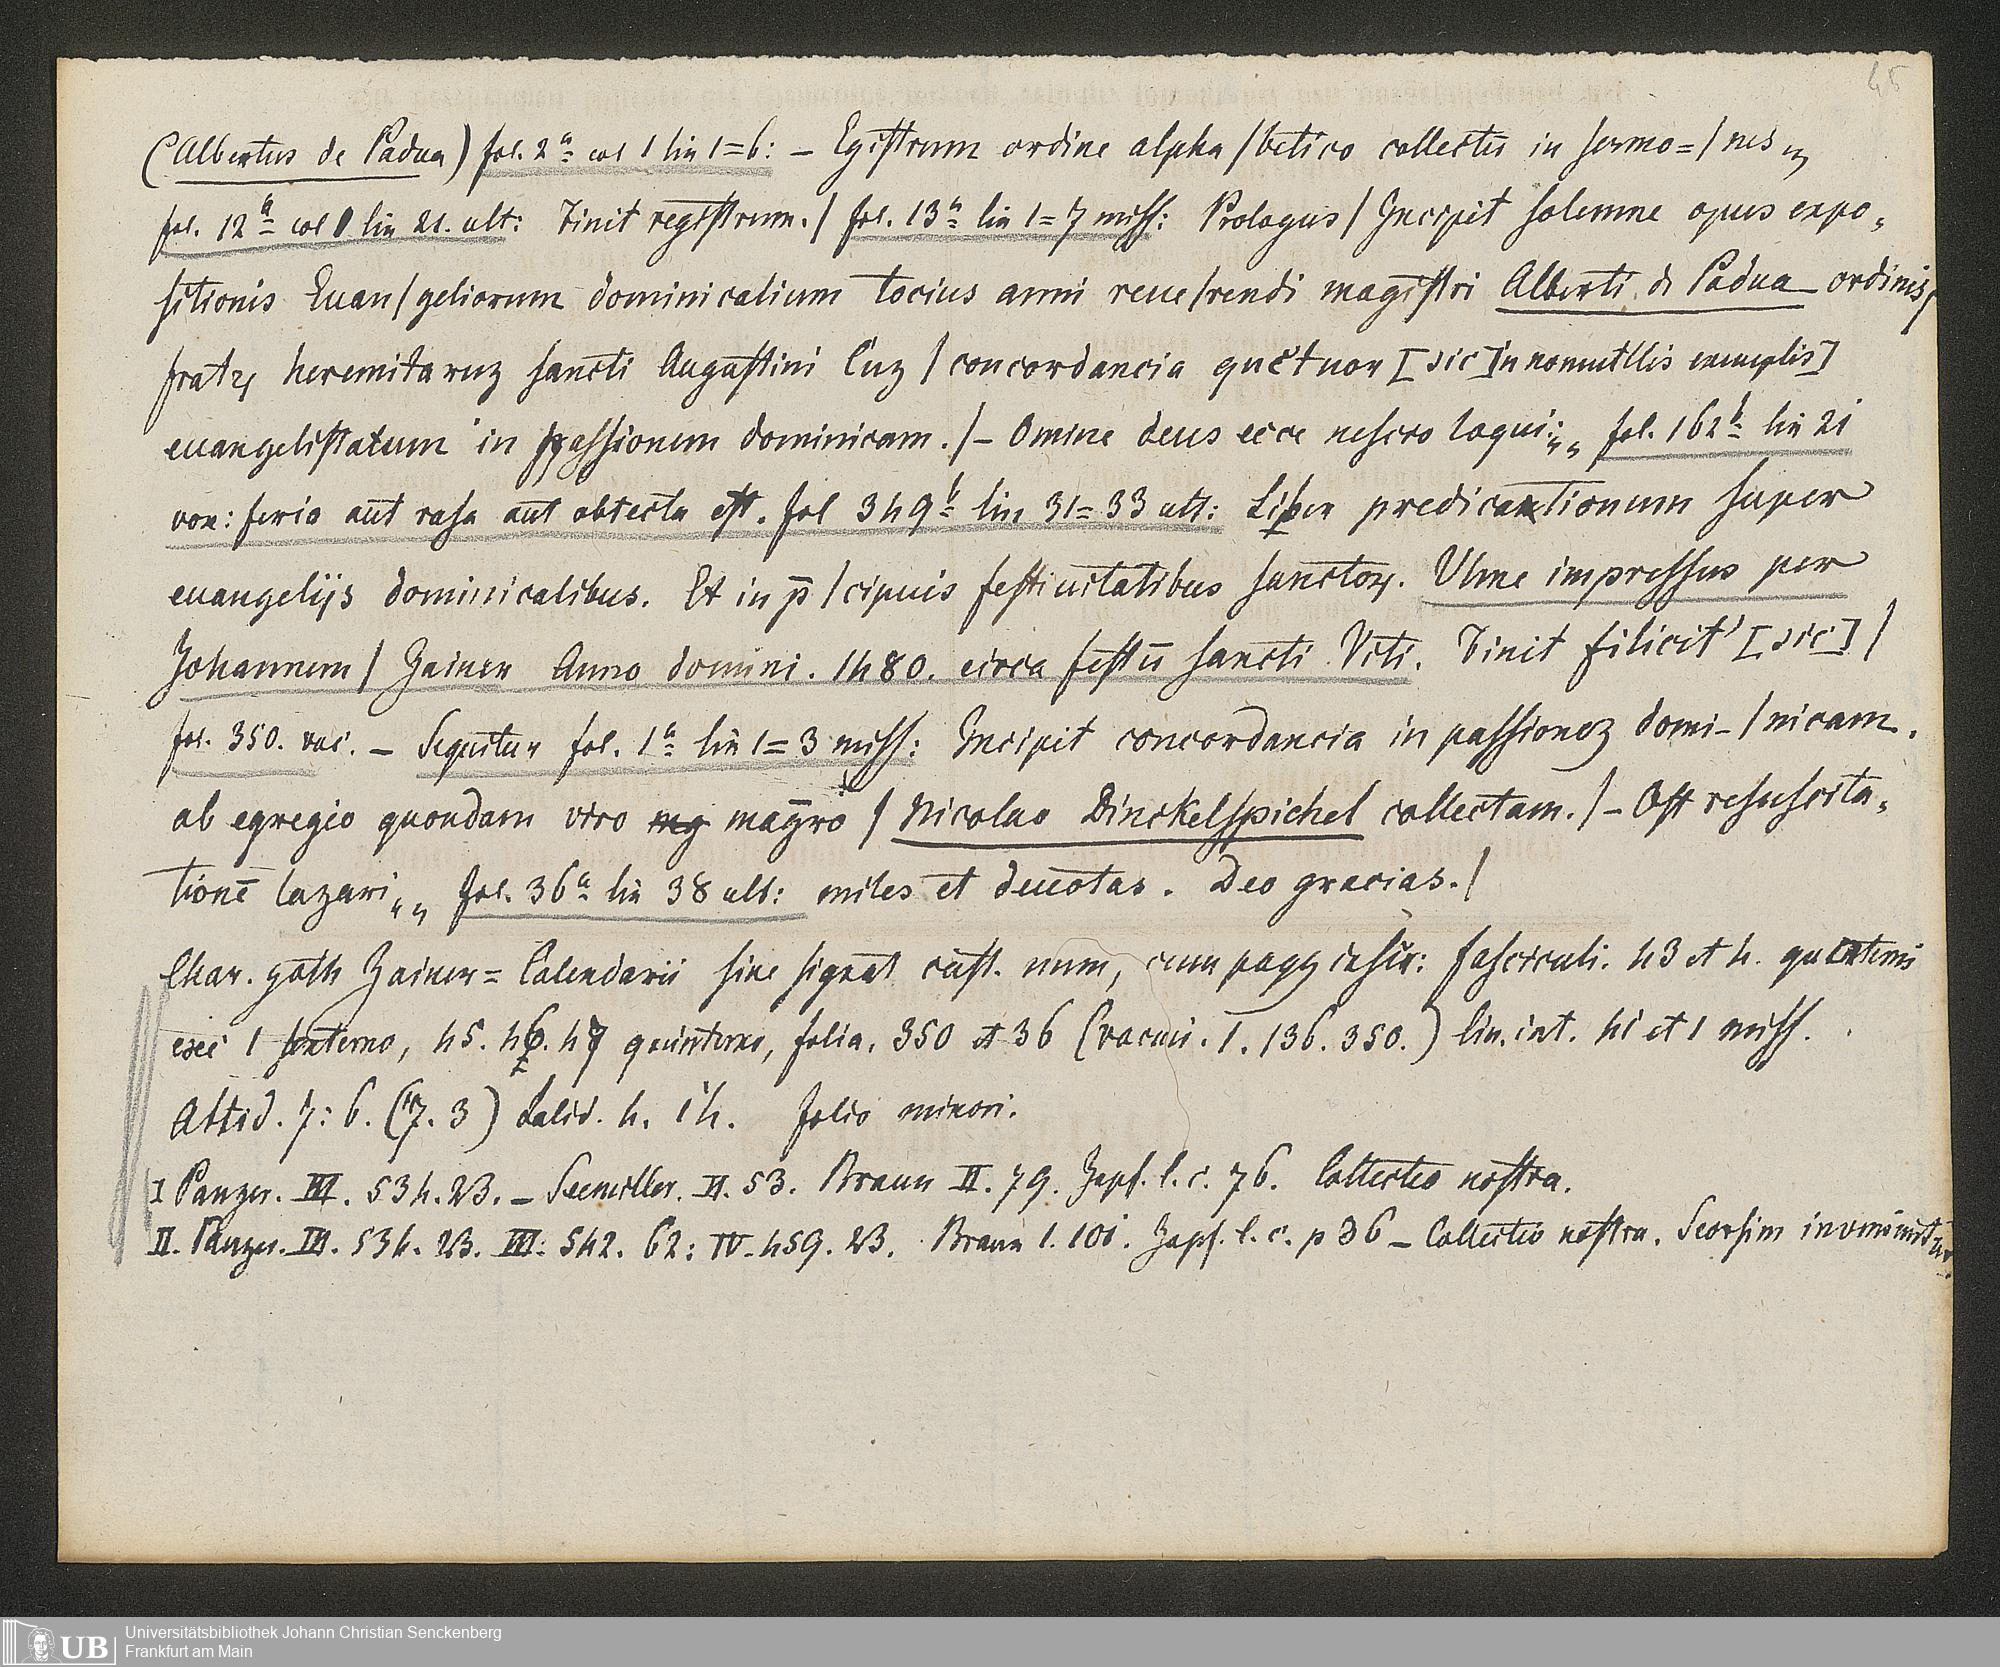 45
(Albertus de Padua) fol. 2a col 1 lin 1=6: – Egistrum ordine alpha/betico collectū in sermo=/nes
fol. 12a col 1 lin 21. ult: Finit registrum./ fol. 13a lin 1=7 miss: Prologus/ Incipit solemne opus expo=
sitionis Euan/geliorum dominicalium tocius anni reue/rendi magistri Alberti de Padua ordinis/
fratrꝫ heremitaruꝫ sancti Augustini Cuꝫ / concordancia quctuor [sic in nonnullis exemplis]
euangelistarum in passionem dominicam./ – Omine deus ecce nescio loqui: „ fol. 162b lin 21
vox: ferio aut rasa aut obtecta est. fol 349b lin 31=33 ult: Liber predicationum super
euangelijs dominicalibus. Et in p̄/cipuis festiuitatibus sanctoꝝ. Vlme impressus per
Johannem/ Zainer Anno domini. 1480. circa festū sancti Viti. Finit filicit' [sic] /
fol. 350. vac. – Sequitur fol. 1a lin 1=3 miss: Incipit concordancia in passionoꝫ domi-/nicam.
ab egregio quondam viro magr̄o / Nicolao Dinckelsspichel collectam./ – Ost resuscita=
tionē lazari „ fol. 36a lin 38 ult: miles et deuotas. Deo gracias./
Char. goth Zainer= Calendarii sine signat cust. num, cum pagg inscr: fasciculi. 43 et 4. quaterni
exci 1 sexterno, 45. 46. 47 quinterno, folia. 350 et 36 (vacui. 1. 136. 350.) lin. int. 41 et 1 miss.
Attid. 7: 6. (7. 3) Latid. 4. 14. folio minori.
I Panzer. III. 534. 23. – Seemiller. II. 53. Braun II. 79. Zapf. l. c. 76. Collectio nostra.
II. Panzer. III. 534. 23. III: 542. 62: IV. 459. 23. Braun 1. 101. Zapf. l. c. p 36 – Collectio nostra. Seorsim
UB
Universitätsbibliothek Johann Christian Senckenberg
Frankfurt am Main